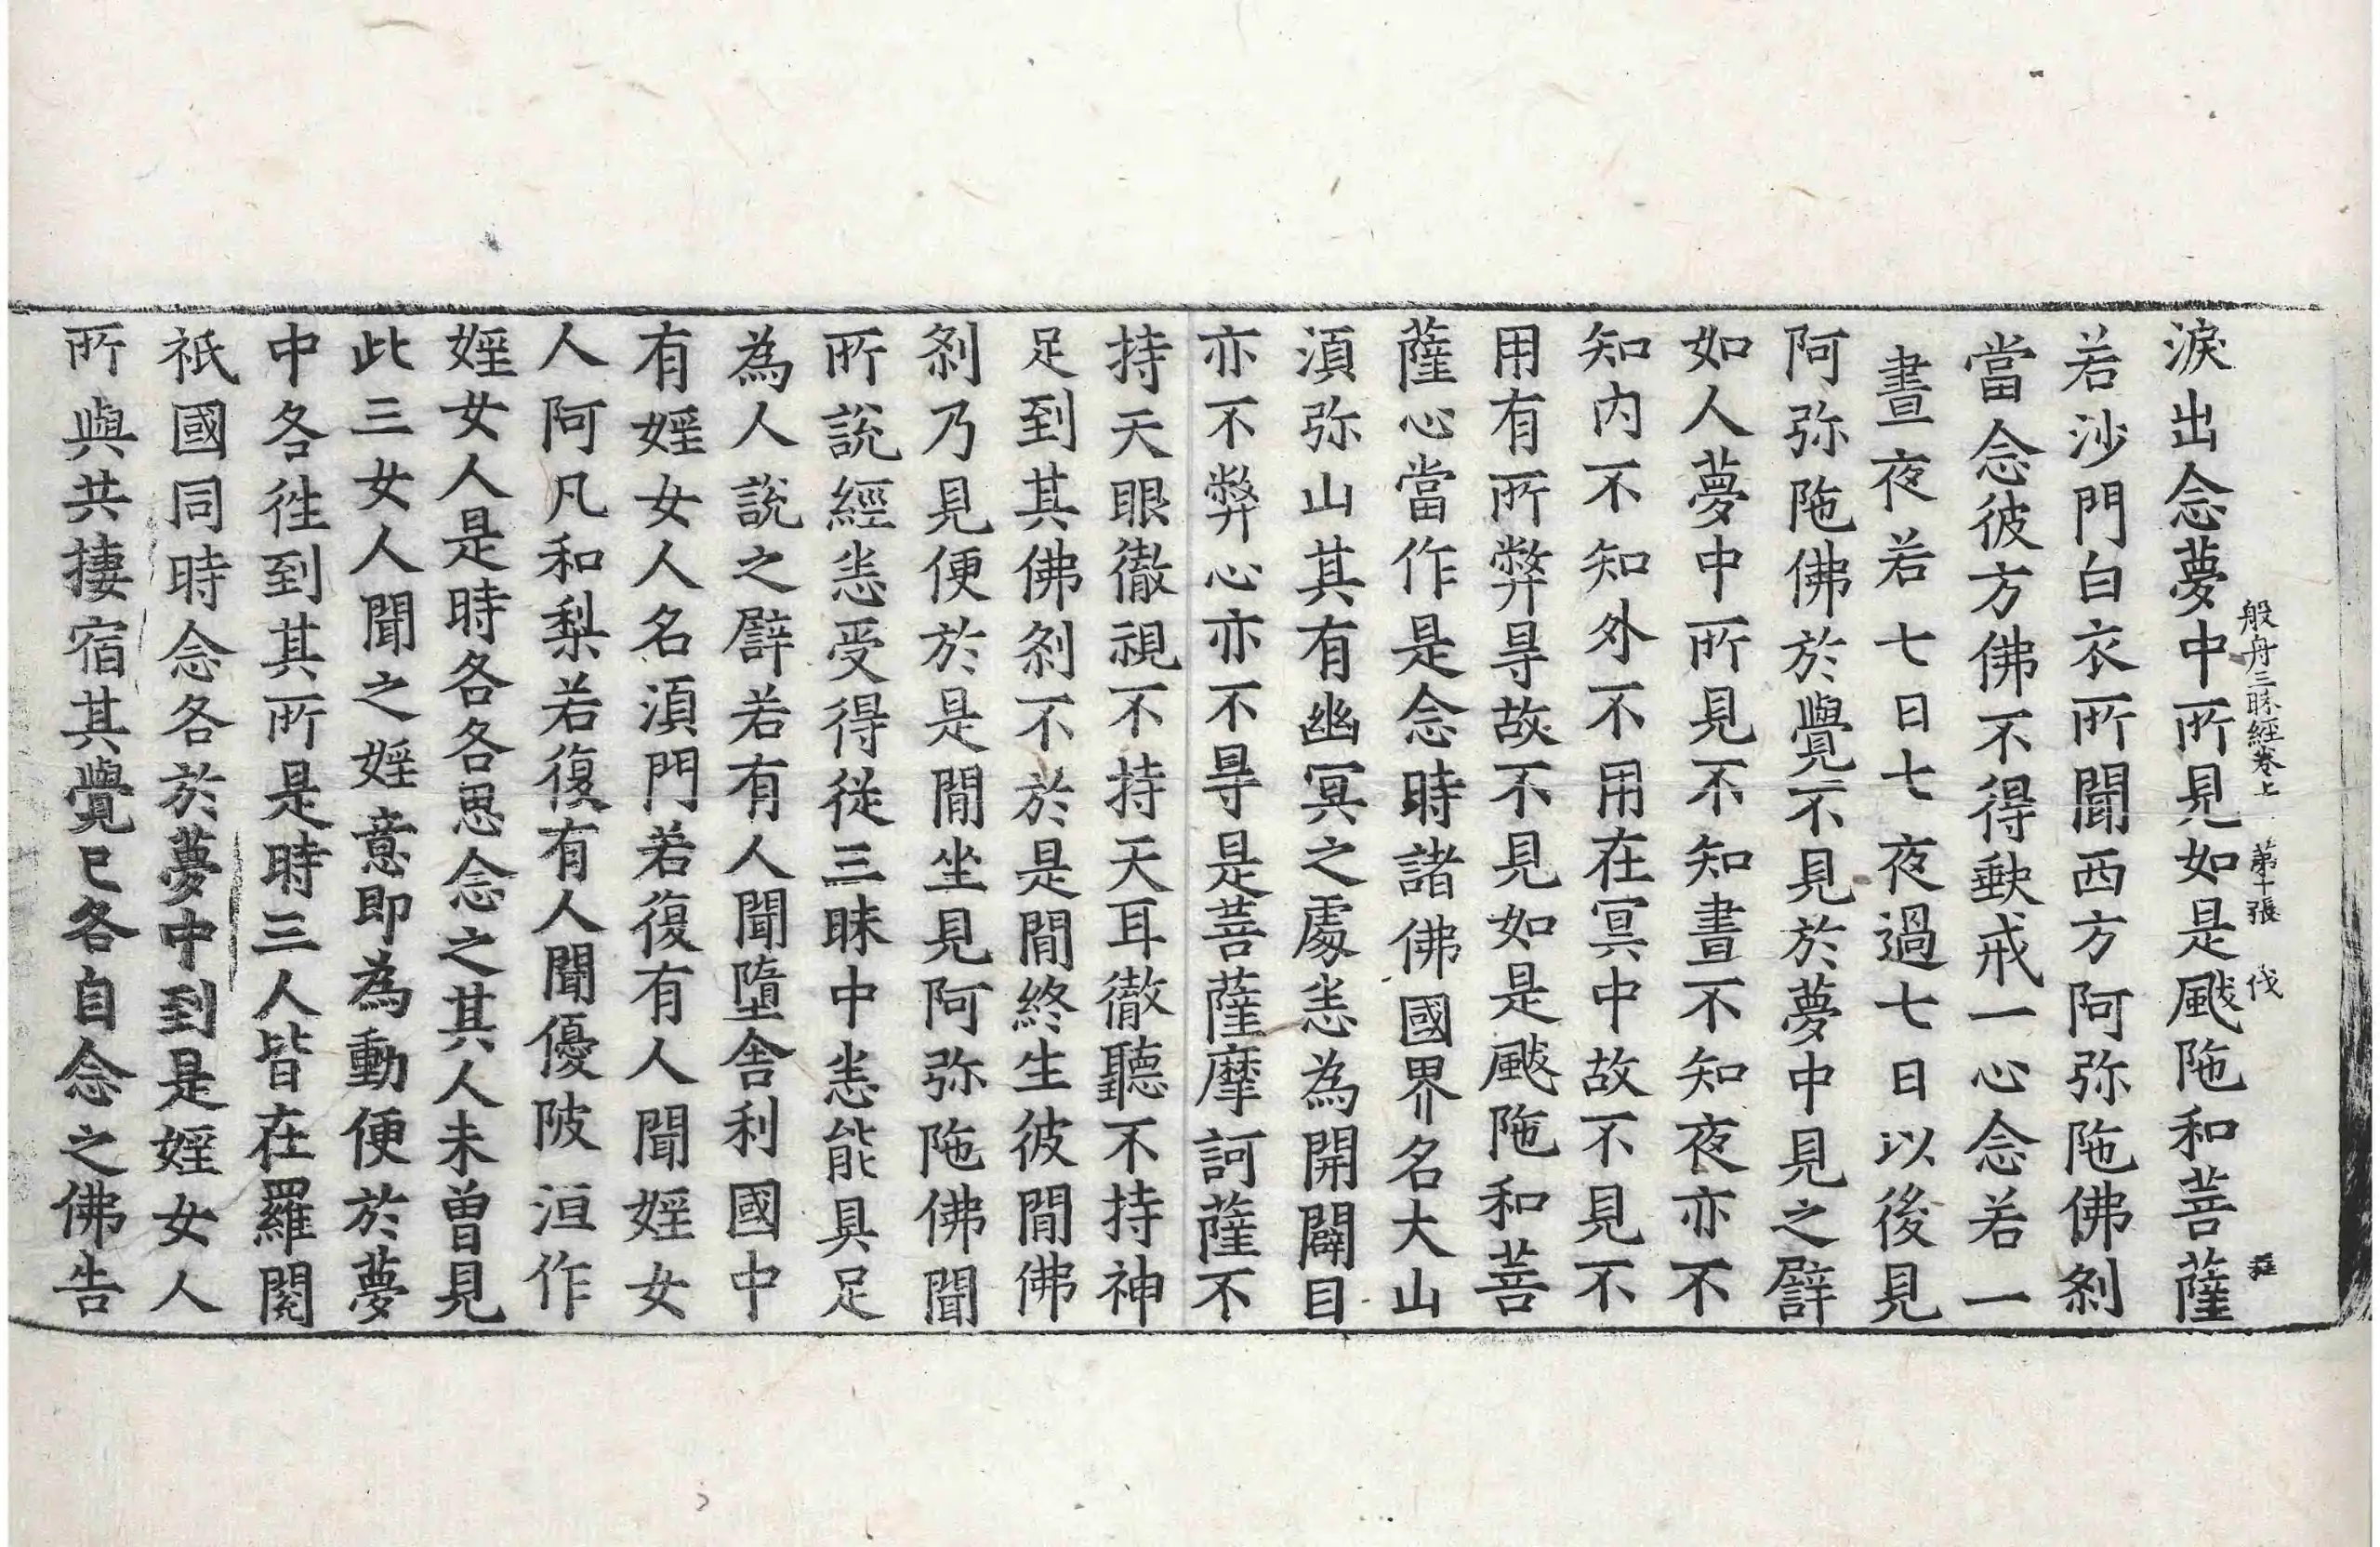 淚出念夢中所見如是颰陁和菩薩
般舟三昧經卷上　第十張　伐
若沙門白衣所聞西方阿弥陁佛刹
當念彼方佛不得缺戒一心念若一
晝夜若七日七夜過七日以後見
阿弥陁佛於覺不見於夢中見之譬
如人夢中所見不知晝不知夜亦不
知內不知外不用在冥中故不見不
用有所弊㝵故不見如是颰陁和菩
薩心當作是念時諸佛國界名大山
湏弥山其有幽冥之處恙為開闢目
亦不弊心亦不㝵是菩薩摩訶薩不
持天眼徹視不持天耳徹聽不持神
足到其佛刹不於是間終生彼間佛
刹乃見便於是間坐見阿弥陁佛聞
所說經恙受得從三昧中恙能具足
為人說之譬若有人聞墮舍利國中
有婬女人名湏門若復有人聞婬女
人阿凡和梨若復有人聞優陂洹作
婬女人是時各各思念之其人未曾見
此三女人聞之婬意即為動便於夢
中各徃到其所是時三人皆在羅閱
祇國同時念各於夢中到是婬女人
所與共棲宿其覺已各自念之佛告